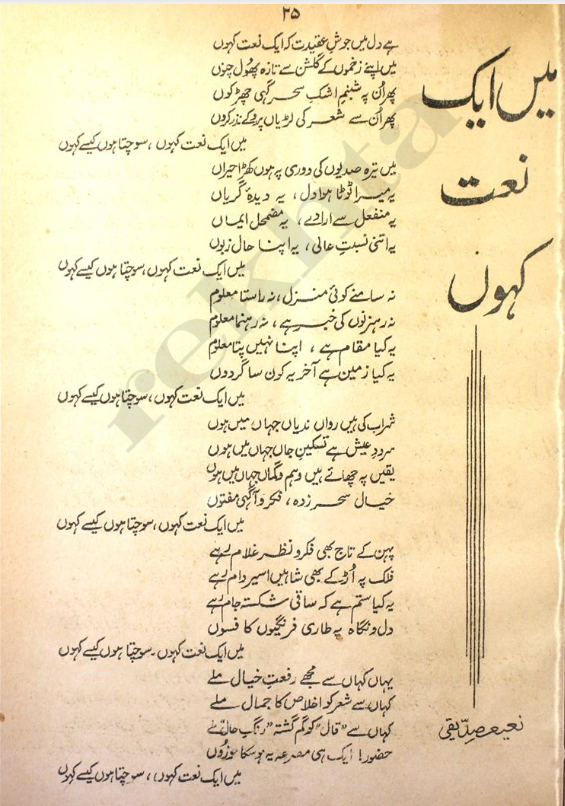 ۳۵
میں ایک
نعت
کہوں
نعیم صدیقی
ہے دل میں جوشِ عقیدت کہ ایک نعت کہوں
میں اپنے زخموں کے گلشن سے تازہ پھُول چنوں
پھر اُن پہ شبنمِ اشکِ سحر گہی چھڑکوں
پھر اُن سے شعر کی لڑیاں پرو کے نذر کروں
میں ایک نعت کہوں ، سوچتا ہوں کیسے کہوں
میں تیرہ صدیوں کی دوری پہ ہوں کھڑا حیراں
یہ میرا ٹوٹا ہوا دل ، یہ دیدۂ گریاں
یہ منفعل سے ارادے ، یہ مضمحل ایماں
یہ اتنی نسبتِ عالی ، یہ اپنا حال زبوں
میں ایک نعت کہوں ، سوچتا ہوں کیسے کہوں
نہ سامنے کوئی منزل ، نہ راستا معلوم
نہ رہزنوں کی خبر ہے ، نہ رہنما معلوم
یہ کیا مقام ہے ، اپنا نہیں پتا معلوم
یہ کیا زمین ہے آخر یہ کون سا گردوں
میں ایک نعت کہوں ، سوچتا ہوں کیسے کہوں
شراب کی ہیں رواں ندیاں جہاں میں ہوں
سرودِ عیش ہے تسکینِ جاں جہاں میں ہوں
یقیں پہ چھائے ہیں وہم و گماں جہاں میں ہوں
خیال سحر زدہ ، فکر و آگہی مفتوں
میں ایک نعت کہوں ، سوچتا ہوں کیسے کہوں
پہن کے تاج بھی فکر و نظر غلام رہے
فلک پہ اُڑ کے بھی شاہیں اسیرِ دام رہے
یہ کیا ستم ہے کہ ساقی شکستہ جام رہے
دل و نگاہ پہ طاری فرنگیوں کا فسوں
میں ایک نعت کہوں ۔ سوچتا ہوں کیسے کہوں
یہاں کہاں سے مجھے رفعتِ خیال ملے
کہاں سے شعر کو اخلاص کا جمال ملے
کہاں سے "قال" کو گم گشتہ "رنگِ حال" ملے
حضور! ایک ہی مصرعہ یہ ہو سکا موزوں
میں ایک نعت کہوں ، سوچتا ہوں کیسے کہوں
rekhta